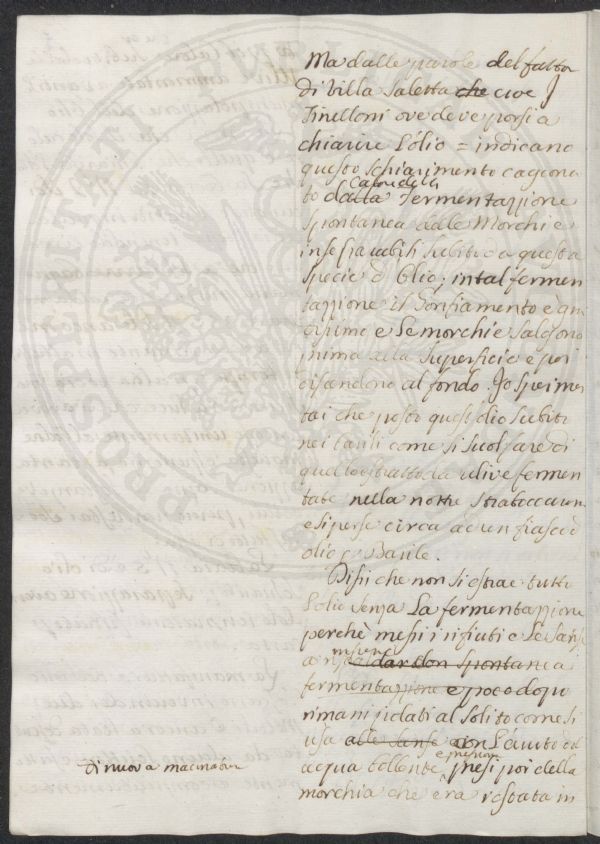 Ma dalle parole del fatto
di Villa Saletta che cioe I
Tinelloni ove deve porsi a
chiarire l'olio = indicano
questo schiarimento cagiona
calore della
to dalla fermentazzione
spontanea delle Morchie
inseparabili subito da questa
specie d'Olio; in tal fermen
tazzione il gonfiamento è gran
dissimo e le morchie salgono
prima alla superficie e poi
calandono al fondo. Io sperimen
tai che posto quest'olio subito
nei barili come si suol fare di
quello estratto da ulive fermen
tate nella notte straboccarono
e si perse circa ad un fiasco d'
olio p. Barile.
Dissi che non si estrae tutto
l'olio senza la fermentazzione
perchè messi i rifiuti o le sanse
a
riscaldar con spontanea
fermentazzione e poco dopo
rimacinolati al solito come si
usa alle sanse con l'aiuto del
acqua bollente presi poi della
Di nuova macinatura
morchia che era restata in